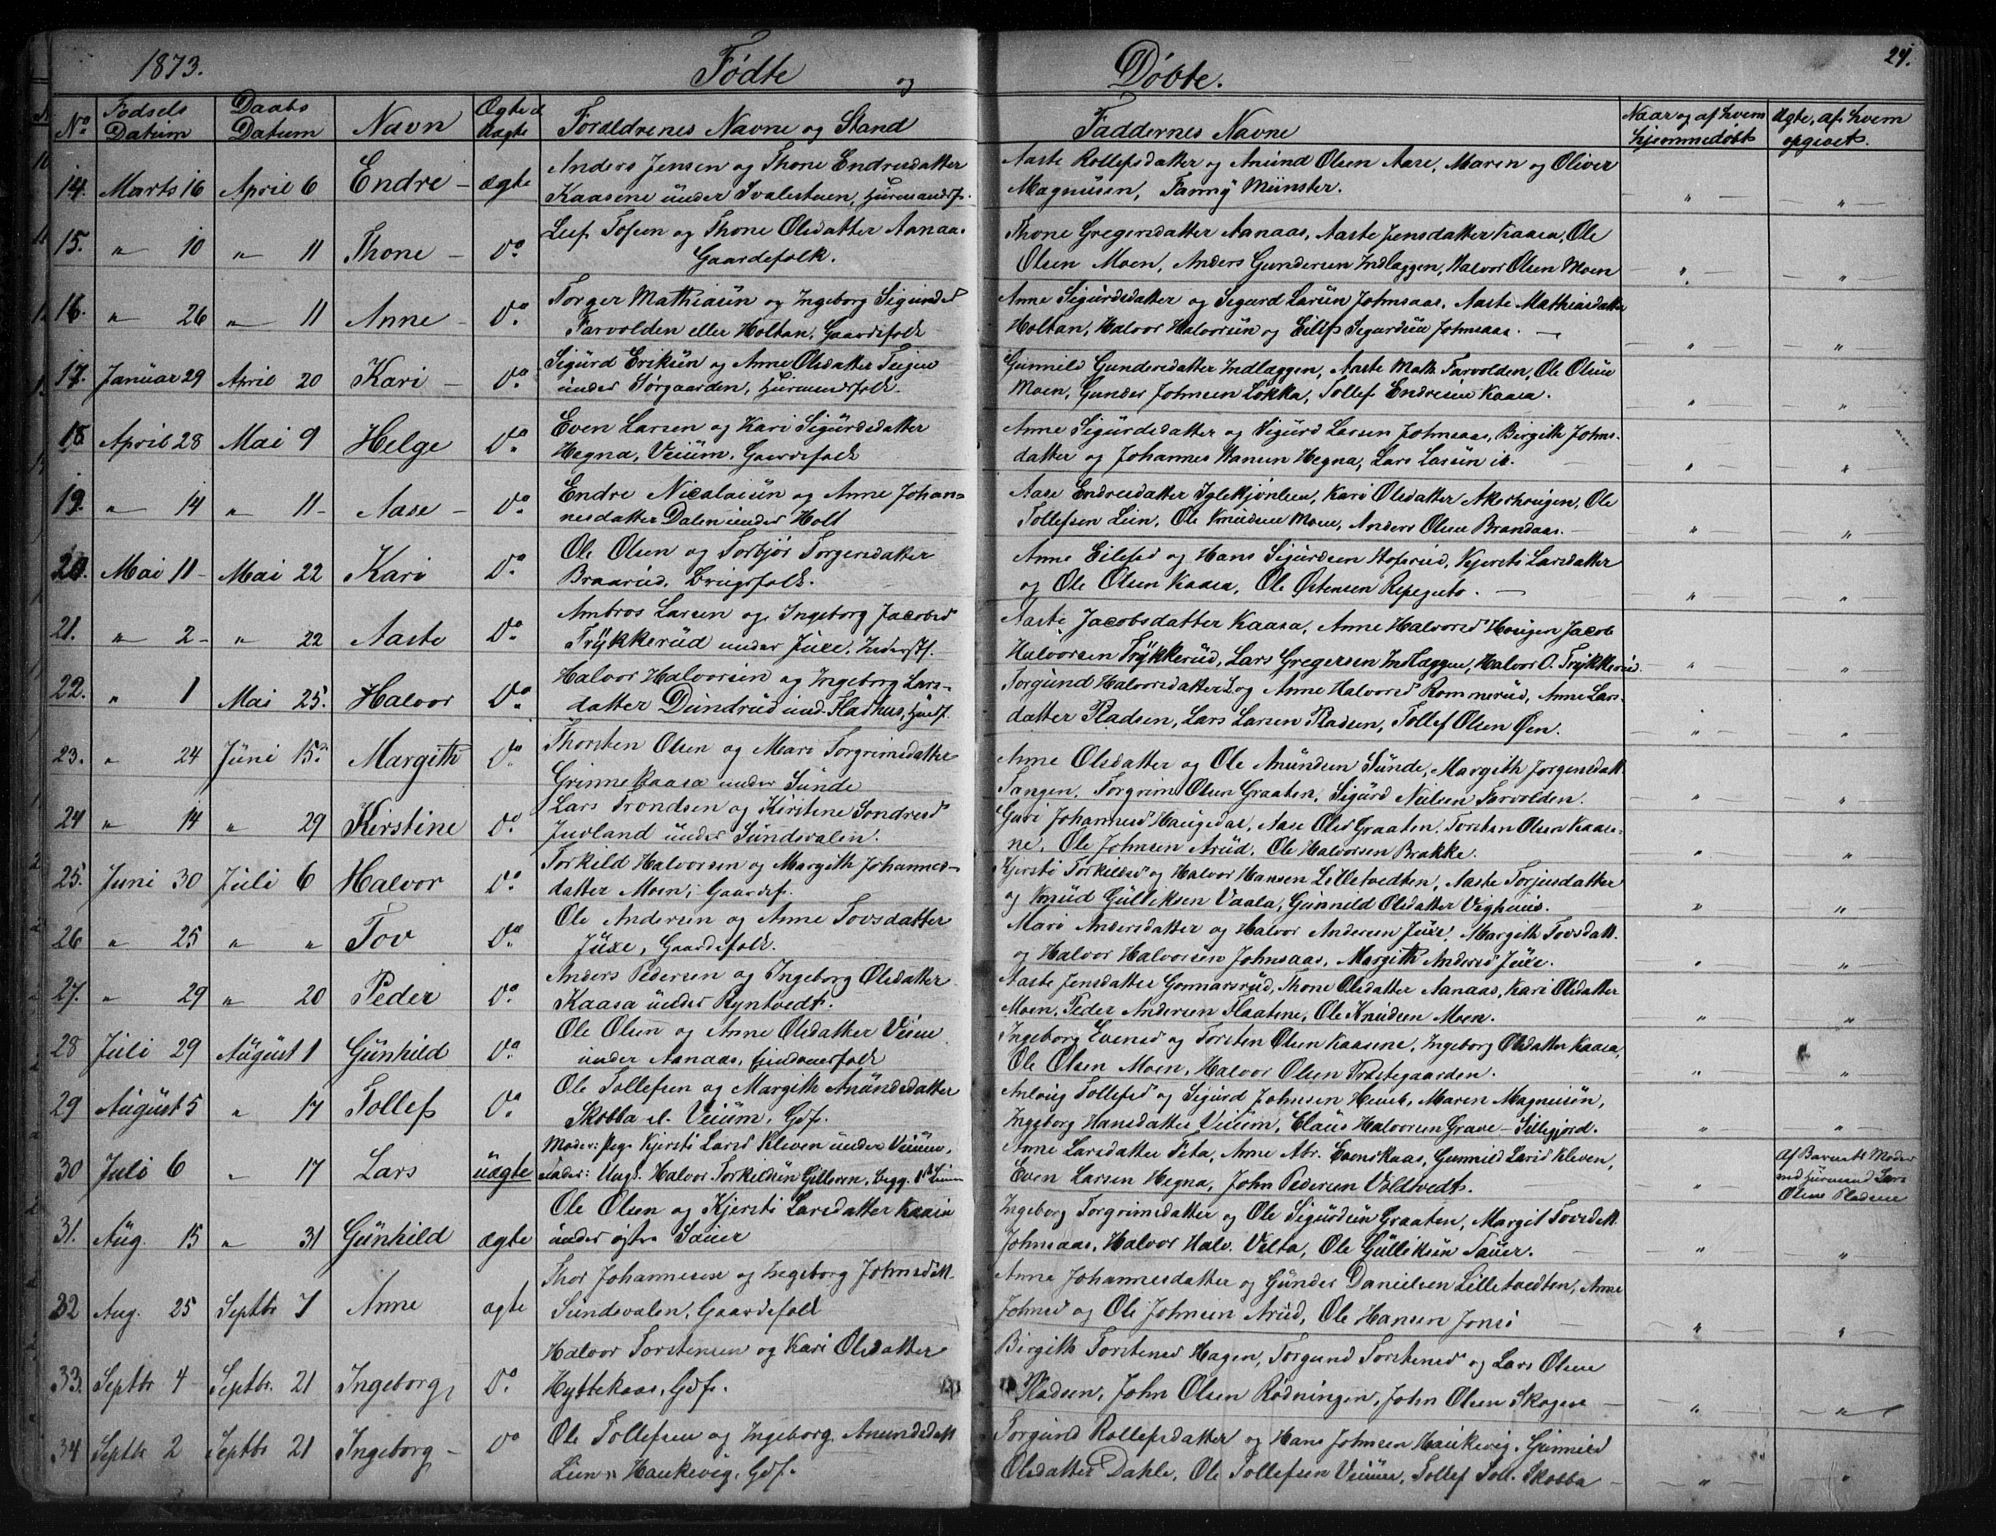 1873.
Födte
og
Döbte.
24.
No
Fødsels Datum
Daabs Datum
Navn
Ægte el. Uægte
Forældrenes Navne og Stand
Faddernes Navne
Naar og af hvem hjemmedøbt
Ugte, af hvem opgivet.
14. Marts 16 April 6 Endre – ægte Anders Jensen og Thone Endresdatter Aaste Rollefsdatter og Anund Olsen Aase, Maren og Oliver
Kaasene under Svalestuen, Huusmandsf. Magnusen, Fanny Münster. " "
15. " 10 " 11 Thone – Do Leif Tofsen og Thone Olsdatter Aanaas Thone Gregersdatter Aanaas, Aaste Jensdatter Kaasa, Ole
Gaardefolk. Olsen Moen, Anders Gundersen Indlæggen, Halvor Olsen Moen " "
16. " 26 " 11 Anne – Do Torger Mathiasen og Ingeborg Sigurdsd Anne Sigurdsdatter og Sigurd Larsen Johnsaas, Aaste Mathiasdatter
Farvolden eller Holtan, Gaardefolk Holtan, Halvor Halvorsen og Eilef Sigurdsen Johnsaas. " "
17. Januar 29 April 20 Kari – Do Sigurd Eriksen og Anne Olsdatter Teigen Gunnild Gundersdatter Indlæggen, Aaste Math. Farvolden, Ole Olsen
under Torgaarden, Huusmandsfolk. Moen, Gunder Johnsen Løkka, Tollef Endresen Kaasa. " "
18. April 28 Mai 9 Helge Do Even Larsen og Kari Sigurdsdatter Anne Sigurdsdatter og Sigurd Larsen Johnsaas, Birgith Johns-
Hegna, Veium, Gaardefolk datter og Johannes Hansen Hegna, Lars Larsen ib. " "
19. " 14 " 11 – Aase – Do Endre Nicolaisen og Anne Johan- Aase Endresdatter Iglekjønlien, Kari Olsdatter Akerhougen, Ole
nesdatter Dalen under Holt Tollefsen Lien, Ole Knudsen Moen, Anders Olsen Brandaas. " "
20. Mai 11 – Mai 22 Kari Do Ole Olsen og Torbjør Torgersdatter Anne Eilefsd og Hans Sigurdsen Hofsrud, Kjersti Larsdatter
Braarud, Brugsfolk. og Ole Olsen Kaasa, Ole Østensen " "
21. " 2 – " 22 Aaste Do Ambros Larsen og Ingeborg Jacobsd Aaste Jacobsdatter Kaasa, Anne Halvorsd Hougen Jacob
Trykkerud under Juxe, Halvorsen Trykkerud, Lars Gregersen Indlæggen, Halvor O. Trykkerud. " "
22. " 1 Mai 25. Halvor Do Halvor Halvorsen og Ingeborg Lars- Torgund Halvorsdatter og Anne Halvorsd Rommerud, Anne Lars-
datter Dundrud und. Fladhus, Huusf. datter Pladsen, Lars Larsen Pladsen, Tollef Olsen Øen. " "
23. " 24 Juni 15. Margith Do Thorsten Olsen og Mari Torgrimsdatter Anne Olsdatter og Ole Anundsen Sunde, Margith Jorgensdatt.
Grimmekaasa under Sunde Tangen, Torgrim Olsen Graaten, Sigurd Nielsen Farvolden. " "
24 " 14 " 29 Kirstine Do Lars Trondsen og Kirstine Sondresd Guri Johannesd Haugsdal, Aase Olsd Graaten, Torsten Olsen Kaase-
Juvland under Sundsvalen. ne, Ole Johnsen Arud, Ole Halvorsen Brakke. " "
25. Juni 30 Juli 6 Halvor Do Torkild Halvorsen og Margith Johannes- Kjersti Torkildsd og Halvor Hansen Lilletvedten, Aaste Torjusdatter
datter Moen, Gaardef. og Knud Gulliksen Vaala, Gunnild Olsdatter Vighuus. " "
26 " 25 " " Tov Do Ole Andersen og Anne Tovsdatter Mari Andersdatter og Halvor Andersen Juxe, Margith Tovsdatt.
Juxe, Gaardefolk. og Halvor Halvorsen Johnsaas, Margith Andersd Juxe. " "
27. " 29 " 20 Peder Do Anders Pedersen og Ingeborg Olsdatter Aaste Jensdatter Gonnarsrud, Thone Olsdatter Aanaas, Kari Olsdatter
Kaasa under Ryntvedt. Moen, Peder Andersen Flaatene, Ole Knudsen Moen. " "
28 Juli 29 August 1 Gunhild Do Ole Olsen og Anne Olsdatter Veium Ingeborg Evensd og Torsten Olsen Kaasene, Ingeborg Olsdatter Kaasa,
under Aanaas, Ole Olsen Moen, Halvor Olsen Præstegaarden. " "
29 August 5 " 17 Tollef Do Ole Tollefsen og Margith Anundsdatter Anlaug Tollefsd og Sigurd Johnsen Maren Magnusen,
Skobba el. Veium, Gdf. Ingeborg Hansdatter Veium, Claus Halvorsen Grave – Sillegjord. " "
30 Juli 6 " 17 Lars uægte Moder: Pige Kjersti Larsd Kleven under Veium, Anne Larsdatter Teta, Anne Abr. Evenskaas, Gunnild Larsd Kleven,
Fader: Ungk. Halvor Torkildsen begg. 1ste Leierm. Even Larsen Hegna, John Pedersen Voldtvedt. " Af Barnets Moder
med Husmand Lars
Olsen Pladsen
31. Aug. 15 " 31 Gunhild ægte Ole Olsen og Kjersti Larsdatter Kaasa Ingeborg Torgrimsdatter og Ole Sigurdsen Graaten, Margit Tovsdtt.
under østre Sauer Johnsaas, Halvor Halv. Velta, Ole Gulliksen Sauer. " "
32 Aug. 25 Septbr 7 Anne ægte Thor Johannesen og Ingeborg Johnsdtt. Anne Johannesdatter og Gunder Danielsen Lilletvedten, Anne
Sundsvalen, Gaardefolk Johnsd og Ole Johnsen Arud, Ole Hansen Jonsi " "
33. Septbr 4 Septbr. 21 Ingeborg Do Halvor Torstensen og Kari Olsdatter Birgith Torstensd Hagen, Torgund Torstensd og Lars Olsen
Hyttekaas, Gdf. Pladsen, John Olsen Rødningen, John Olsen Skogen " "
34 Septbr 2 Septbr 21 Ingeborg – Do Ole Tollefsen og Ingeborg Anundsdatt Torgund Rollefsdatter og Hans Johnsen Haukevig, Gunnild
Lien Haukevig, Gdf. Olsdatter Dahle, Ole Tollefsen Veium, Tollef Toll. Skobba " "